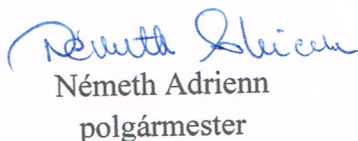 Németh Adrienn
Németh Adrienn
polgármester